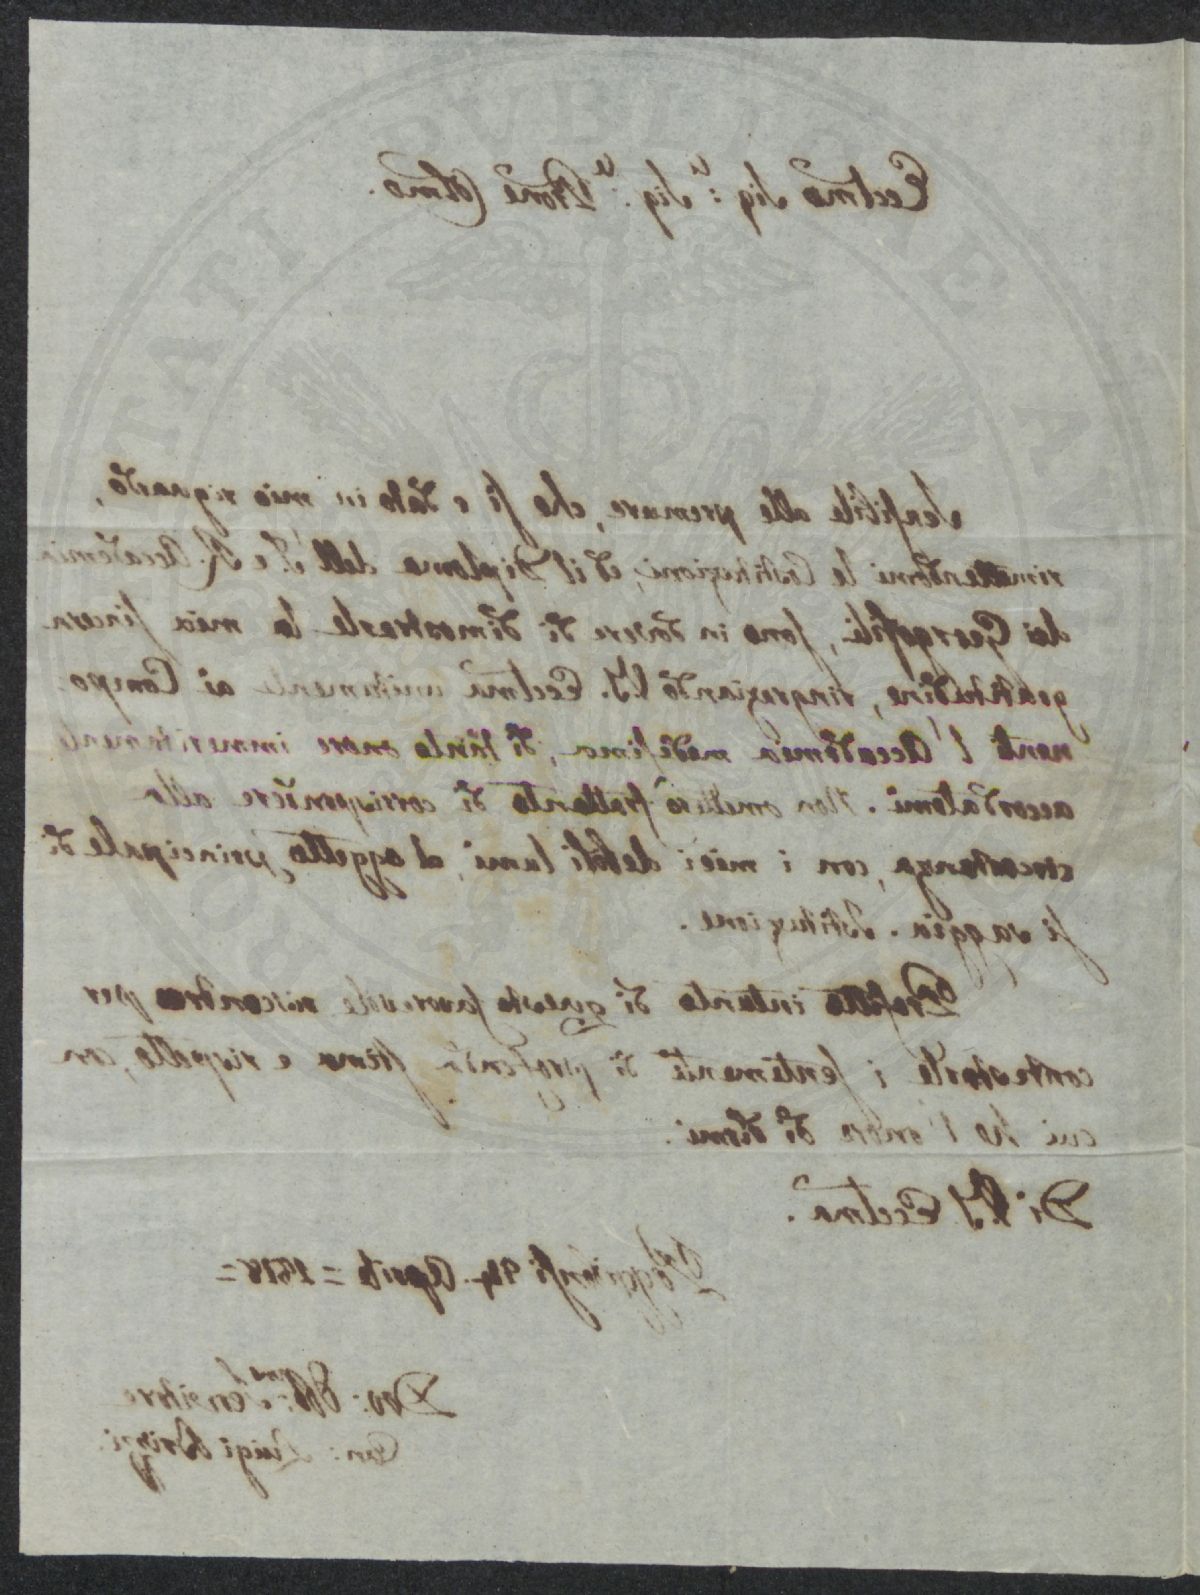 Ecclmo Sig:r Sig:r Prone Colmo.
Sensibile alle premure, che si è dato in mio riguardo,
rimettendomi le Costituzioni, ed il Diploma dell'I. e R. Accademia
dei Georgofili, sono in dovere di dimostrarle la mia sincera
gratitudine, ringraziando V.S. Ecclma unitamente ai Compo
nenti l'Accademia medesima, di tanto onore immeritamente
accordatomi. Non ometterò frattanto di corrispondere alla
circostanza, con i miei deboli lumi, al oggetto principale di
sì saggia Istituzione.
Profitto intanto di questo favorevole riscontro per
contestarle i sentimenti di profonda stima e rispetto, con
cui ho l'onore di dirmi.
Di V.S. Ecclma.
Poggibonsi 24. Aprile = 1818 =
Dev: Obb:mo Servitore
Can: Luigi
PUBLICAE